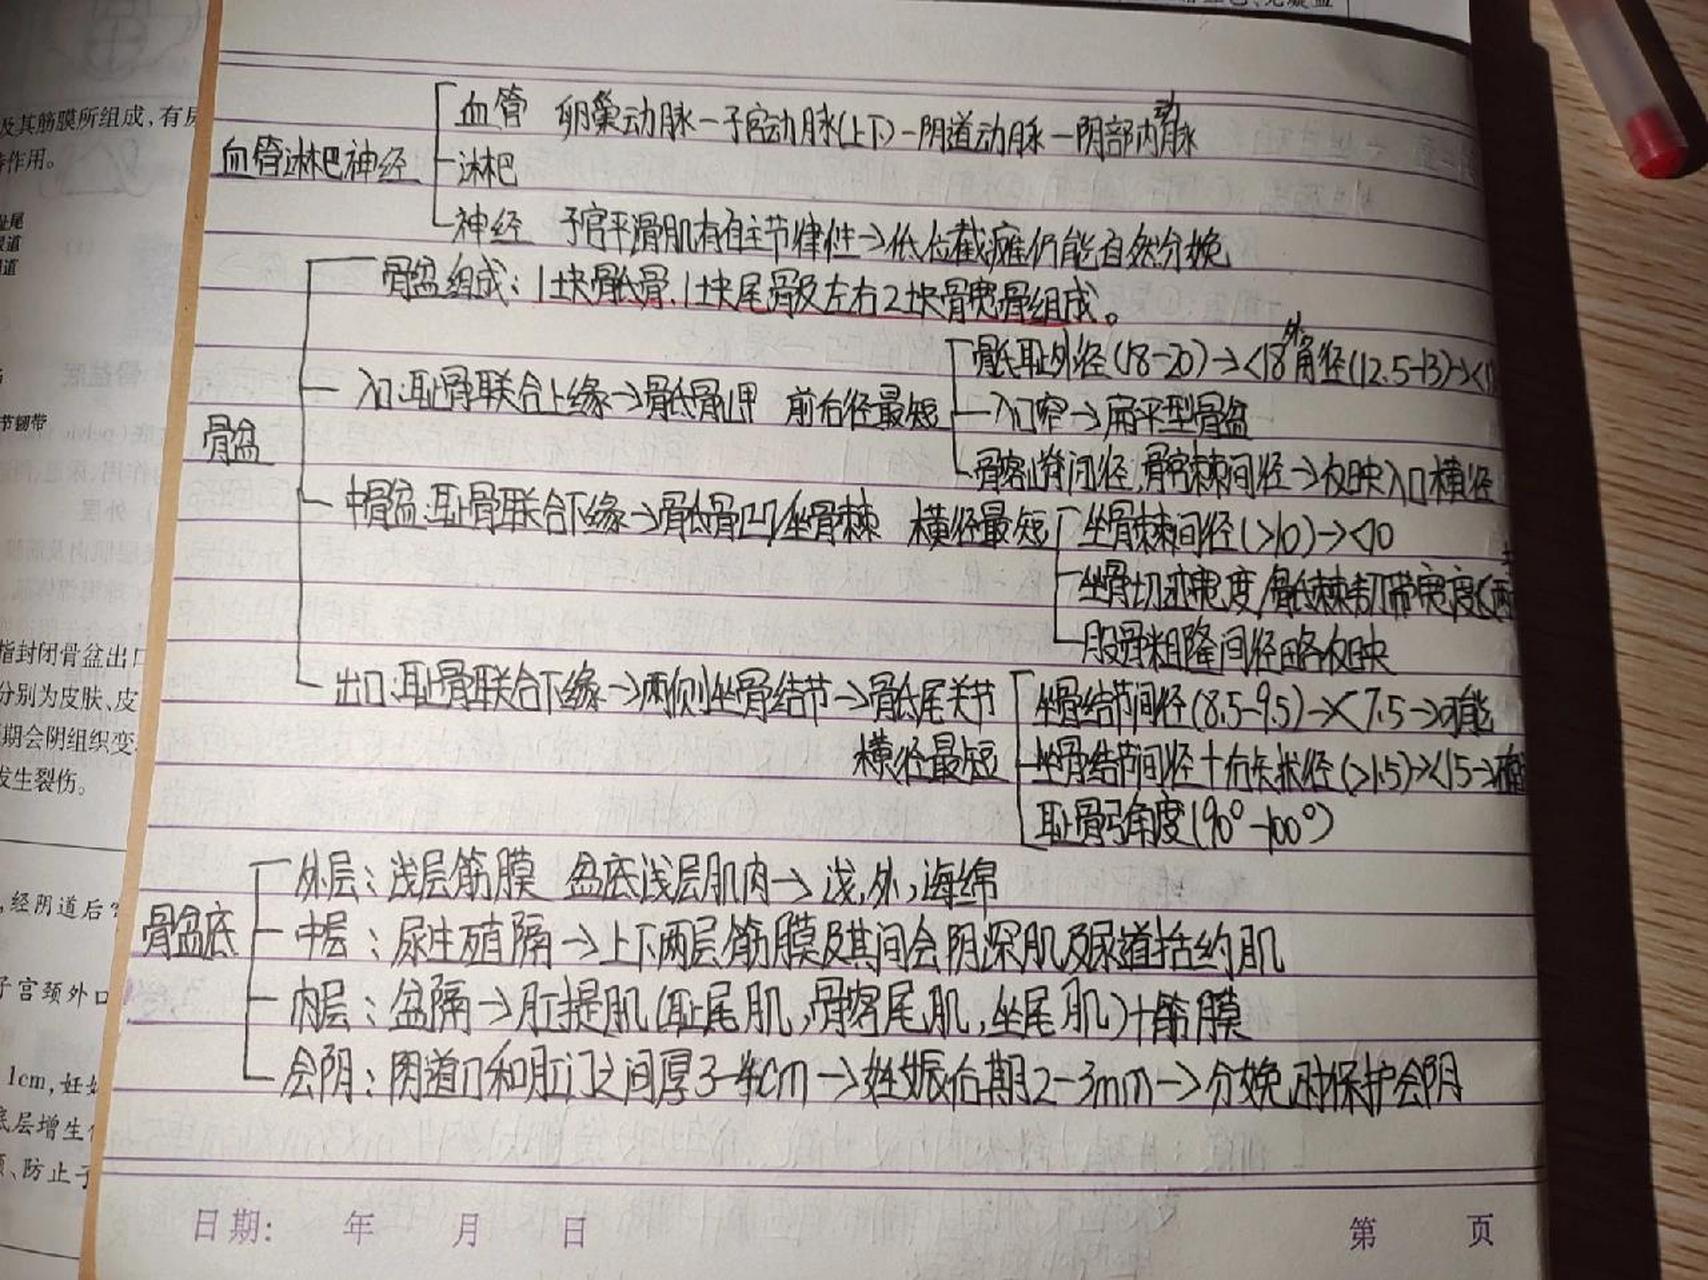 血管淋巴神经
血管 卵巢动脉-子宫动脉(上下)-阴道动脉-阴部内动脉
淋巴
神经 子宫平滑肌有自主节律性→低位截瘫仍能自然分娩
骨盆
骨盆组成:1块骶骨、1块尾骨及左右2块髋骨组成。
入口:耻骨联合上缘→骶骨岬 前后径最短
骶耻外径(18-20)→<18 外角径(12.5-13)→<
入口窄→扁平型骨盆
髂嵴间径,髂棘间径→反映入口横径
中骨盆:耻骨联合下缘→骶骨凹/坐骨棘 横径最短
坐骨棘间径(>10)→<10
坐骨切迹宽度/骶棘韧带宽度<两
股骨粗隆间径略反映
出口:耻骨联合下缘→两侧坐骨结节→骶尾关节
横径最短
坐骨结节间径(8.5-9.5)→<7.5→可能
坐骨结节间径+后矢状径(>1.5)→<15→
耻骨弓角度(90°-100°)
骨盆底
外层:浅层筋膜 盆底浅层肌肉→浅,外,海绵
中层:尿生殖隔→上下两层筋膜及其间会阴深肌及尿道括约肌
内层:盆隔→肛提肌(耻尾肌,髂尾肌,坐尾肌)+筋膜
会阴:阴道口和肛门之间厚3-4cm→妊娠后期2-3mm→分娩时保护会阴
日期: 年 月 日
第 页
及其筋膜所组成,有
作用。
节韧带
指封闭骨盆出口
分别为皮肤、皮
期会阴组织变
发生裂伤。
,经阴道后
子宫颈外口
1cm,妊
底层增生
、防止子